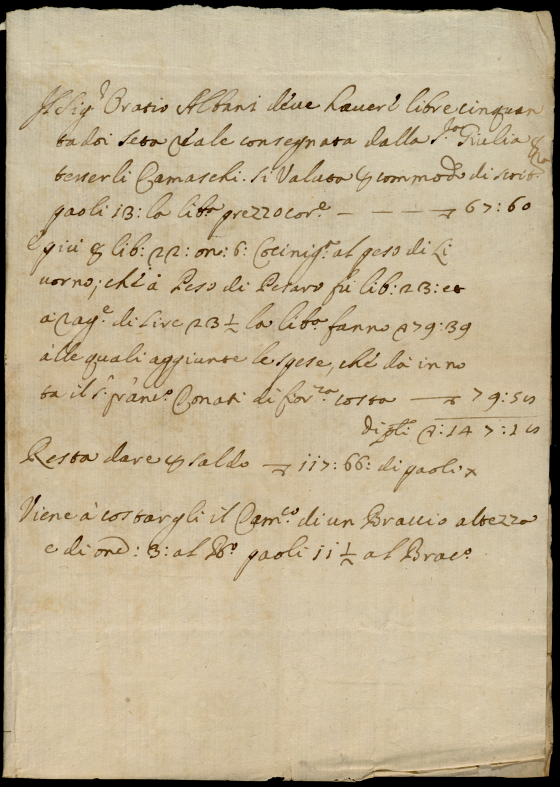 Il Sigr Oratio Albani deve haver' libre cinquan
tadoi seta reale consegnata dalla Sra Giulia &
tesserli Camaschi. si valuta & commodo di scrit.ra
paoli 13: la libra prezzo core — — — 67: 60
E più & lib: 22: on: 6: Cocinig.a al peso di Li
vorno; che à Peso di Pesaro fù lib: 23: et
a rage di Lire 23½ la libra fanno 79: 39
alle quali aggiunte le spese, che dà in no
ta il Sr franco Conati di forza costa — 79: 55
di pli 147: 15
Resta dare & saldo — 117: 66: di paoli x
Viene à costargli il Camco di un Braccio altezza
e di one: 3: al Bo paoli 11½ al Braco